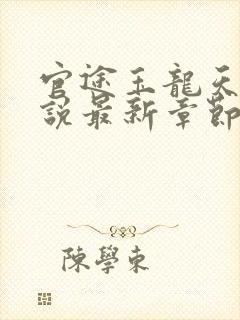 官途王龍天
說最新章節
陳學東